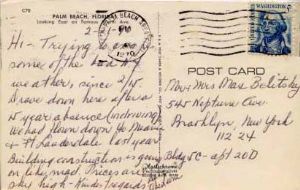 C79
PALM BEACH, FLORIDA
Looking East on Famous North Ave.
PALM BEACH
PM
1970
WASHINGTON
POST CARD
Hi - Trying to
some of the bad NY
weather, since 2/
Drove down here after a
year absence
We had flown down to Miami
+ Ft Lauderdale last year
Building construction is going
on like mad. Prices are
sky high - Kindest regards
Mr + Mrs Max
545 Neptune Ave
Brooklyn New York
11224
Bldg 5C - apt 20D